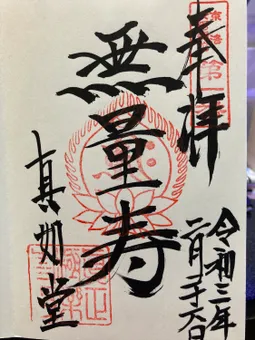 奉拝
無量寿
真如堂
令和三年
二月二十六日